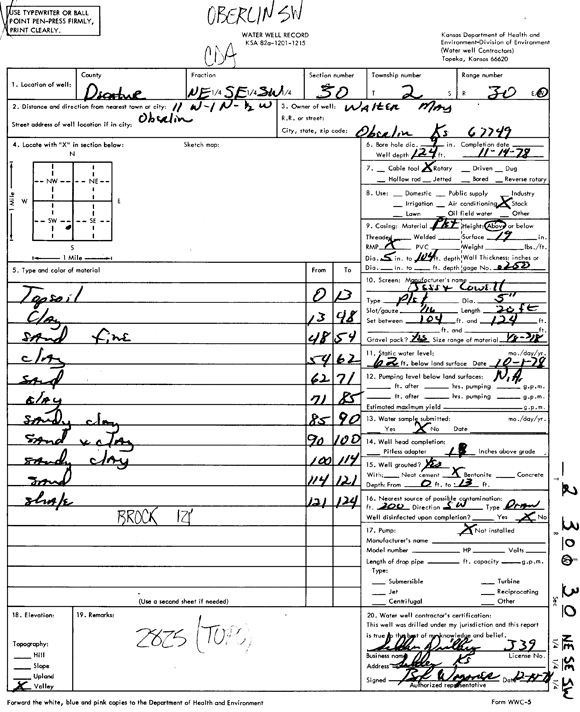 USE TYPEWRITER OR BALL POINT PEN-PRESS FIRMLY, PRINT CLEARLY.
OBERLIN SW
CDA
WATER WELL RECORD
KSA 82a-1201-1215
Kansas Department of Health and Environment-Division of Environment
(Water well Contractors)
Topeka, Kansas 66620
1. Location of well: County Decatur Fraction NE 1/4 SE 1/4 SW 1/4 Section number 30 Township number T 2 S Range number R 30 E W
2. Distance and direction from nearest town or city: 11 W-1 N-1/2 W
Oberlin
Street address of well location if in city:
3. Owner of well: Walter May
R.R. or street:
City, state, zip code: Oberlin Ks 67749
4. Locate with "X" in section below: Sketch map:
N
NW NE
W E
SW SE
S
1 Mile
1 Mile
6. Bore hole dia. 9 in. Completion date
Well depth 124 ft. 11-14-78
7. Cable tool X Rotary Driven Dug
Hollow rod Jetted Bored Reverse rotary
8. Use: Domestic Public supply Industry
Irrigation Air conditioning X Stock
Lawn Oil field water Other
9. Casing: Material Plst Height: Above or below
Threaded Welded Surface 19 in.
RMP X PVC Weight lbs./ft.
Dia. 5 in. to 104 ft. depth Wall Thickness: inches or
Dia. in. to ft. depth gage No. .0250
5. Type and color of material From To
Topsoil 0 13
Clay 13 48
Sand fine 48 54
Clay 54 62
Sand 62 71
Clay 71 85
Sandy clay 85 90
Sand & clay 90 100
Sandy clay 100 114
Sand 114 121
Shale 121 124
BROCK 12'
(Use a second sheet if needed)
10. Screen: Manufacturer's name
Type Plst Dia. 5"
Slot/gauze 1/16 Length 20 ft
Set between 104 ft. and 124 ft.
ft. and ft.
Gravel pack? Yes Size range of material 1/8-3/8
11. Static water level: mo./day/yr.
62 ft. below land surface Date 10-1-78
12. Pumping level below land surfaces: N.A.
ft. after hrs. pumping g.p.m.
ft. after hrs. pumping g.p.m.
Estimated maximum yield g.p.m.
13. Water sample submitted: mo./day/yr.
Yes X No Date
14. Well head completion:
Pitless adapter 18 Inches above grade
15. Well grouted? Yes
With: Neat cement X Bentonite Concrete
Depth: From 0 ft. to 13 ft.
16. Nearest source of possible contamination:
ft. 200 Direction SW Type Draw
Well disinfected upon completion? Yes X No
17. Pump: X Not installed
Manufacturer's name
Model number HP Volts
Length of drop pipe ft. capacity g.p.m.
Type:
Submersible Turbine
Jet Reciprocating
Centrifugal Other
18. Elevation:
Topography:
Hill
Slope
Upland
X Valley
19. Remarks:
2825 (TOPO)
20. Water well contractor's certification:
This well was drilled under my jurisdiction and this report is true to the best of my knowledge and belief.
Selden Drilling 339
Business name License No.
Address Selden Ks
Signed Date
Authorized representative
Forward the white, blue and pink copies to the Department of Health and Environment
Form WWC-5
T 2 R 30 W Sec 30 NE 1/4 SE 1/4 SW 1/4